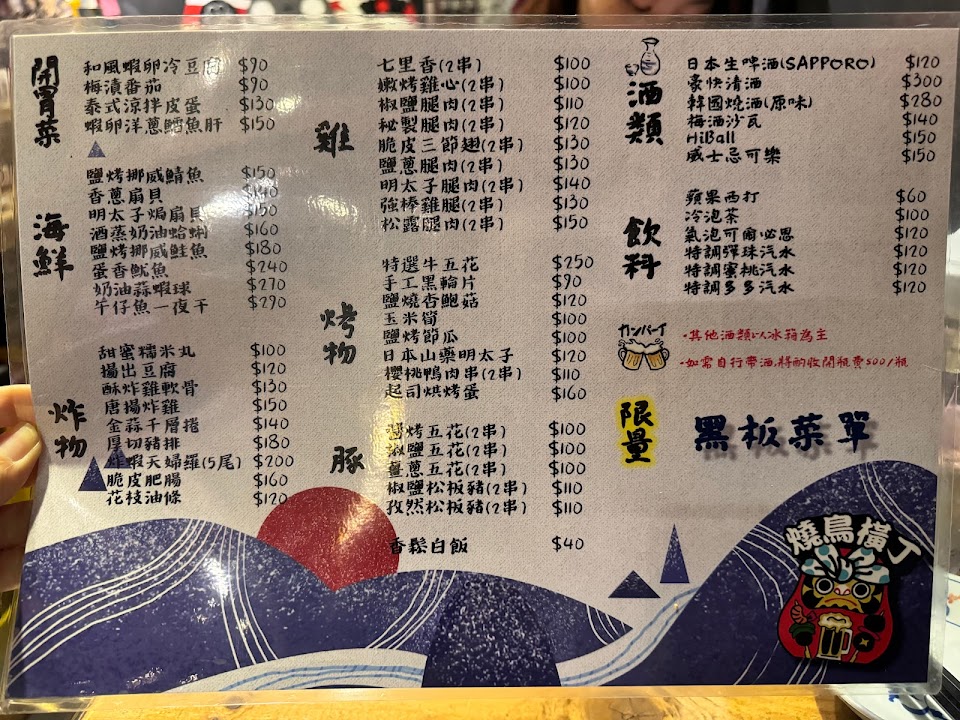 開胃菜
和風蝦卵冷豆腐 $90
梅漬番茄 $90
泰式涼拌皮蛋 $130
蝦卵洋蔥鱈魚肝 $150
海鮮
鹽烤挪威鯖魚 $150
香蔥扇貝 $140
明太子焗扇貝 $150
酒蒸奶油蛤蜊 $160
鹽烤挪威鮭魚 $180
蛋香魷魚 $240
奶油蒜蝦球 $270
午仔魚一夜干 $290
炸物
甜蜜糯米丸 $100
揚出豆腐 $120
酥炸雞軟骨 $130
唐揚炸雞 $150
金蒜千層捲 $140
厚切豬排 $180
炸蝦天婦羅(5尾) $200
脆皮肥腸 $160
花枝油條 $120
雞
七里香(2串) $100
嫩烤雞心(2串) $100
椒鹽腿肉(2串) $110
秘製腿肉(2串) $120
脆皮三節翅(2串) $130
鹽蔥腿肉(2串) $130
明太子腿肉(2串) $140
強棒雞腿(2串) $130
松露腿肉(2串) $150
烤物
特選牛五花 $250
手工黑輪片 $90
鹽燒杏鮑菇 $120
玉米筍 $100
鹽烤節瓜 $100
日本山藥明太子 $120
櫻桃鴨肉串(2串) $110
起司烘烤蛋 $160
豚
醬烤五花(2串) $100
椒鹽五花(2串) $100
薑蔥五花(2串) $100
椒鹽松板豬(2串) $110
孜然松板豬(2串) $110
香鬆白飯 $40
酒類
日本生啤酒(SAPPORO) $120
豪快清酒 $300
韓國燒酒(原味) $280
梅酒沙瓦 $140
HiBall $150
威士忌可樂 $150
飲料
蘋果西打 $60
冷泡茶 $100
氣泡可爾必思 $120
特調彈珠汽水 $120
特調蜜桃汽水 $120
特調多多汽水 $120
カンパーイ
•其他酒類以冰箱為主
•如需自行帶酒,將酌收開瓶費500/瓶
限量
黑板菜單
燒鳥橫丁